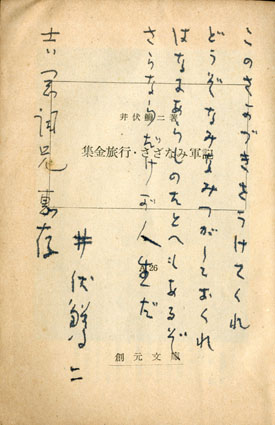 このさかづきをうけてくれ
どうぞなみなみつがしておくれ
はなにあらしのたとへもあるぞ
さよならだけが人生だ
井伏鱒二
兄 恵存
井伏鱒二著
集金旅行・さざなみ軍記
26
創元文庫